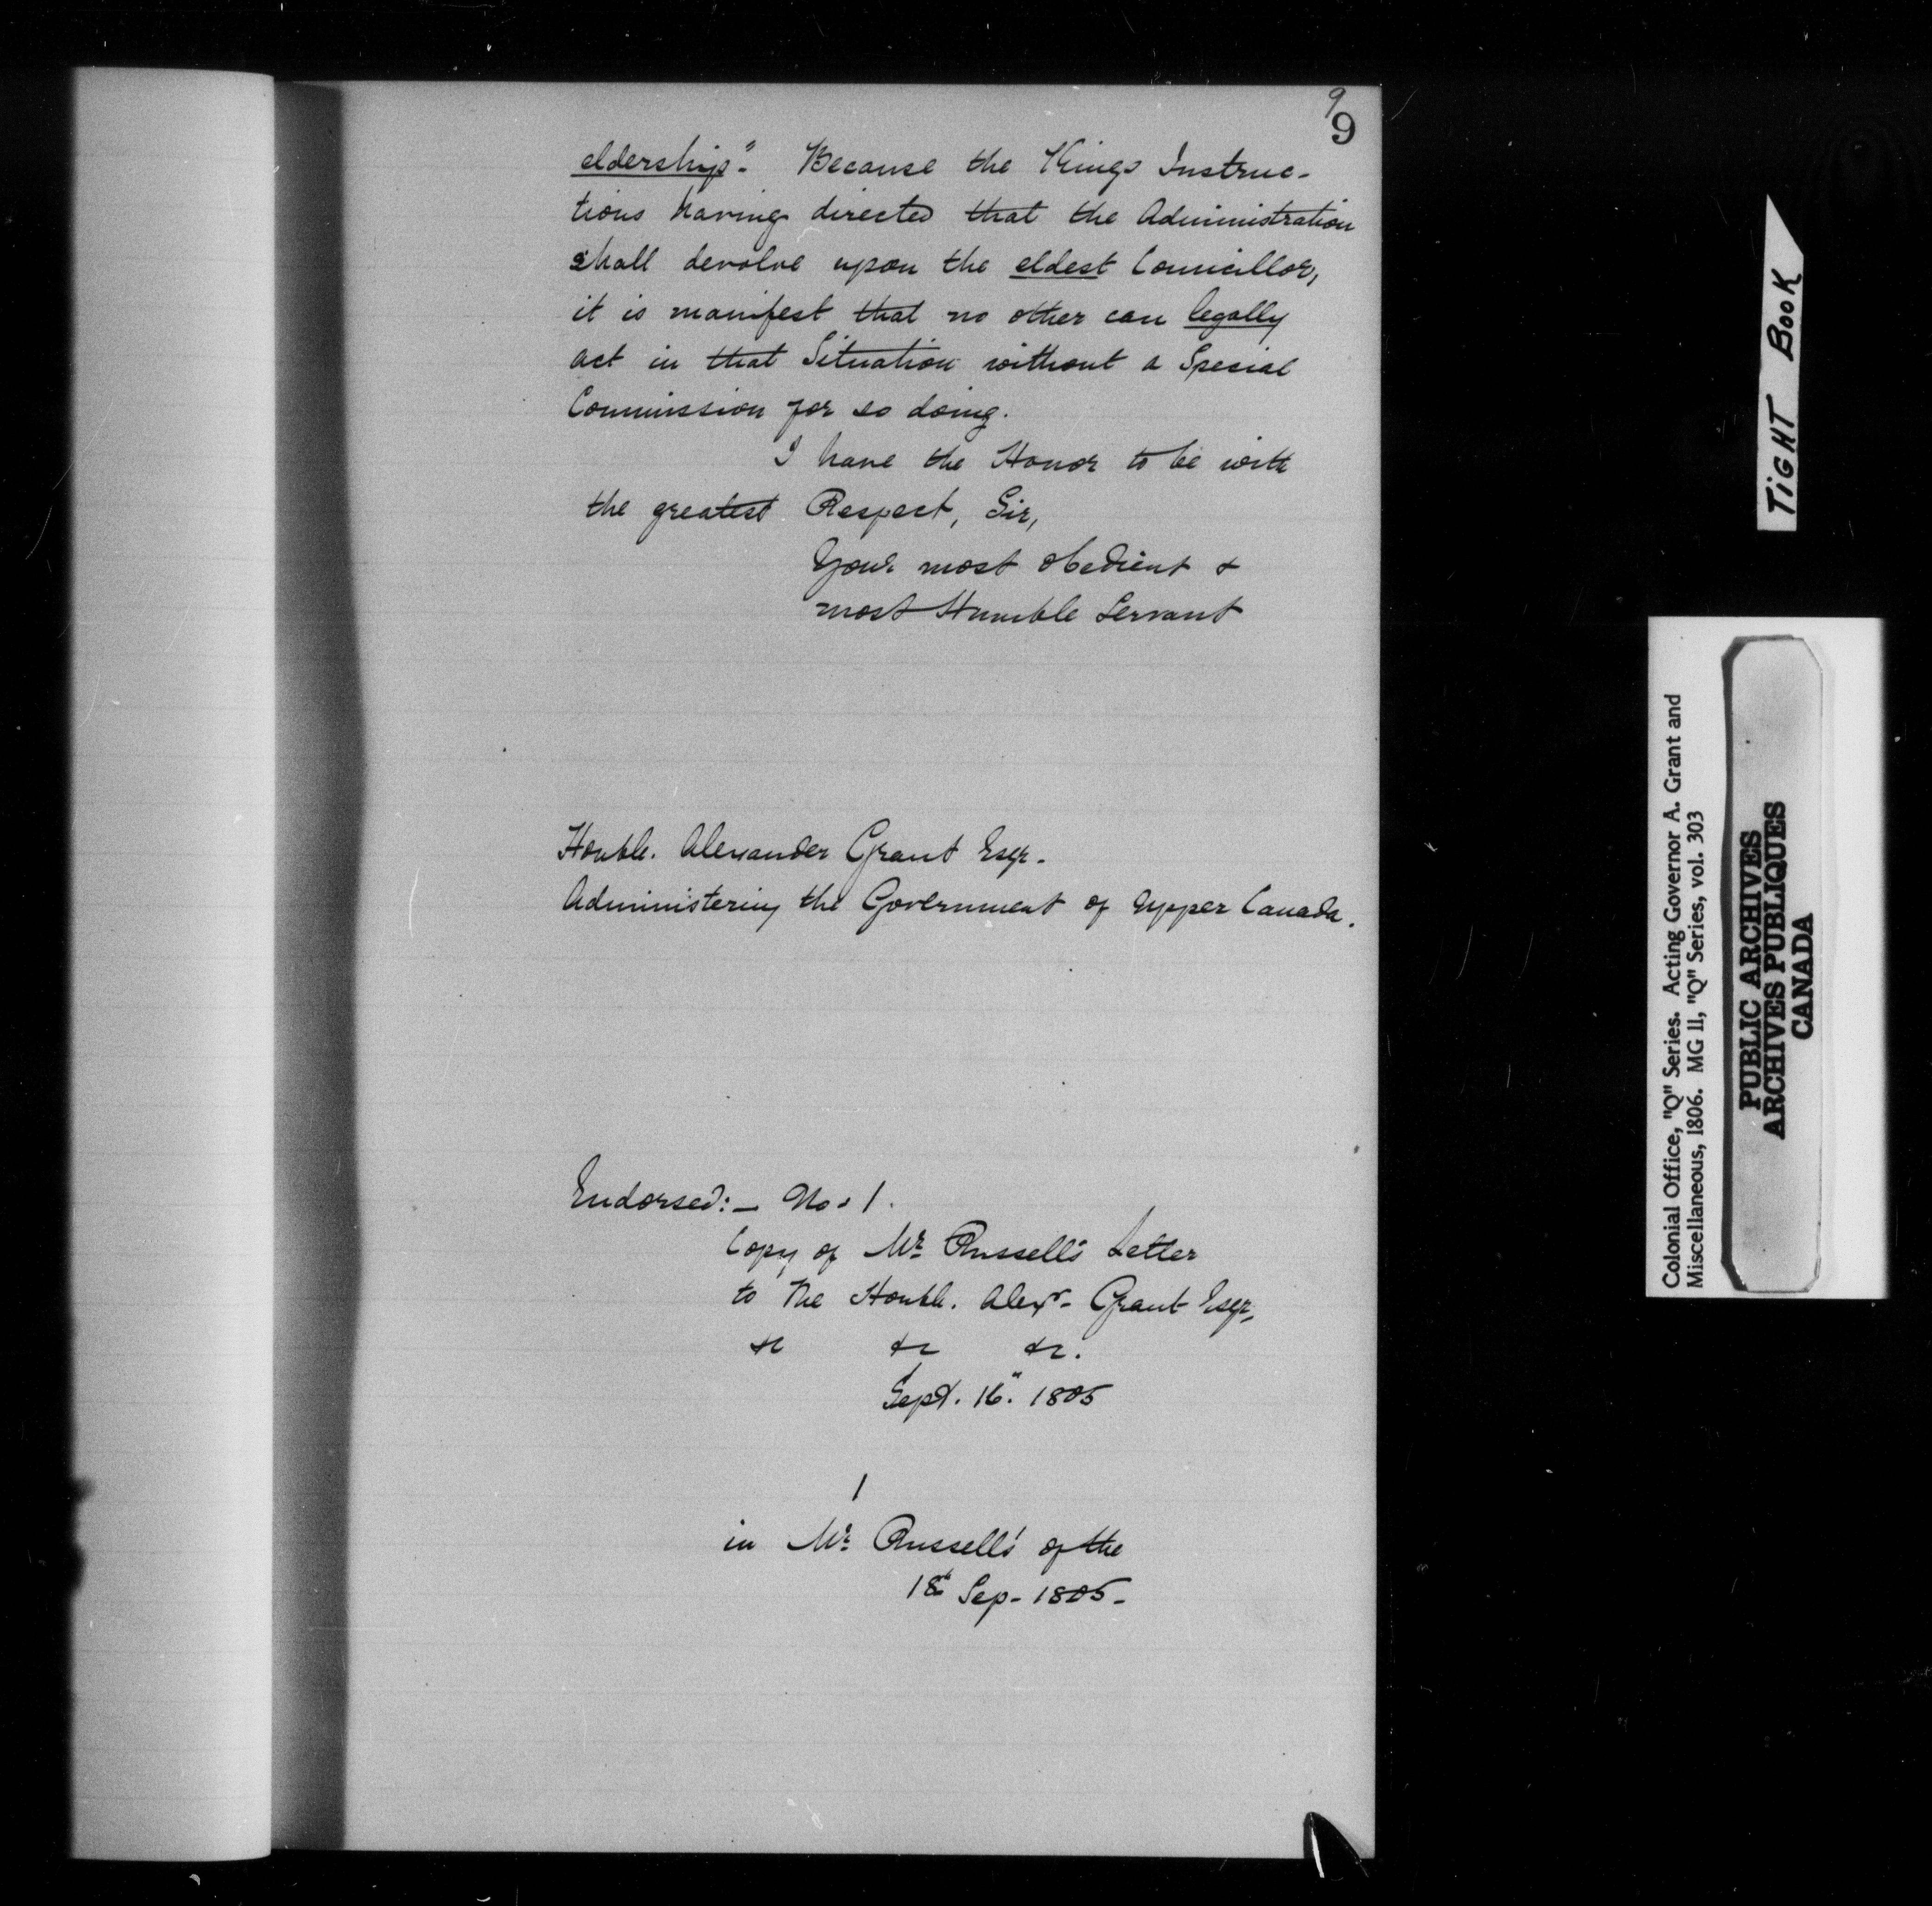 9
9
eldership". Because the Kings Instruc-
tions having directed that the Administration
shall devolve upon the eldest Councillor,
it is manifest that no other can legally
act in that Situation without a Special
Commission for so doing.
I have the Honor to be with
the greatest Respect, Sir,
Your most obedient &
most Humble Servant
Honble. Alexander Grant Esqr.
Administering the Government of Upper Canada.
Endorsed:- No. 1.
Copy of Mr Russell's Letter
to The Honble. Alexr. Grant Esqr.
&c &c &c.
Sept. 16" 1805
1
in Mr Russell's of the
18th Sep- 1805-
TIGHT BOOK
Colonial Office, "Q" Series. Acting Governor A. Grant and
Miscellaneous, 1806. MG 11, "Q" Series, vol. 303
PUBLIC ARCHIVES
ARCHIVES PUBLIQUES
CANADA